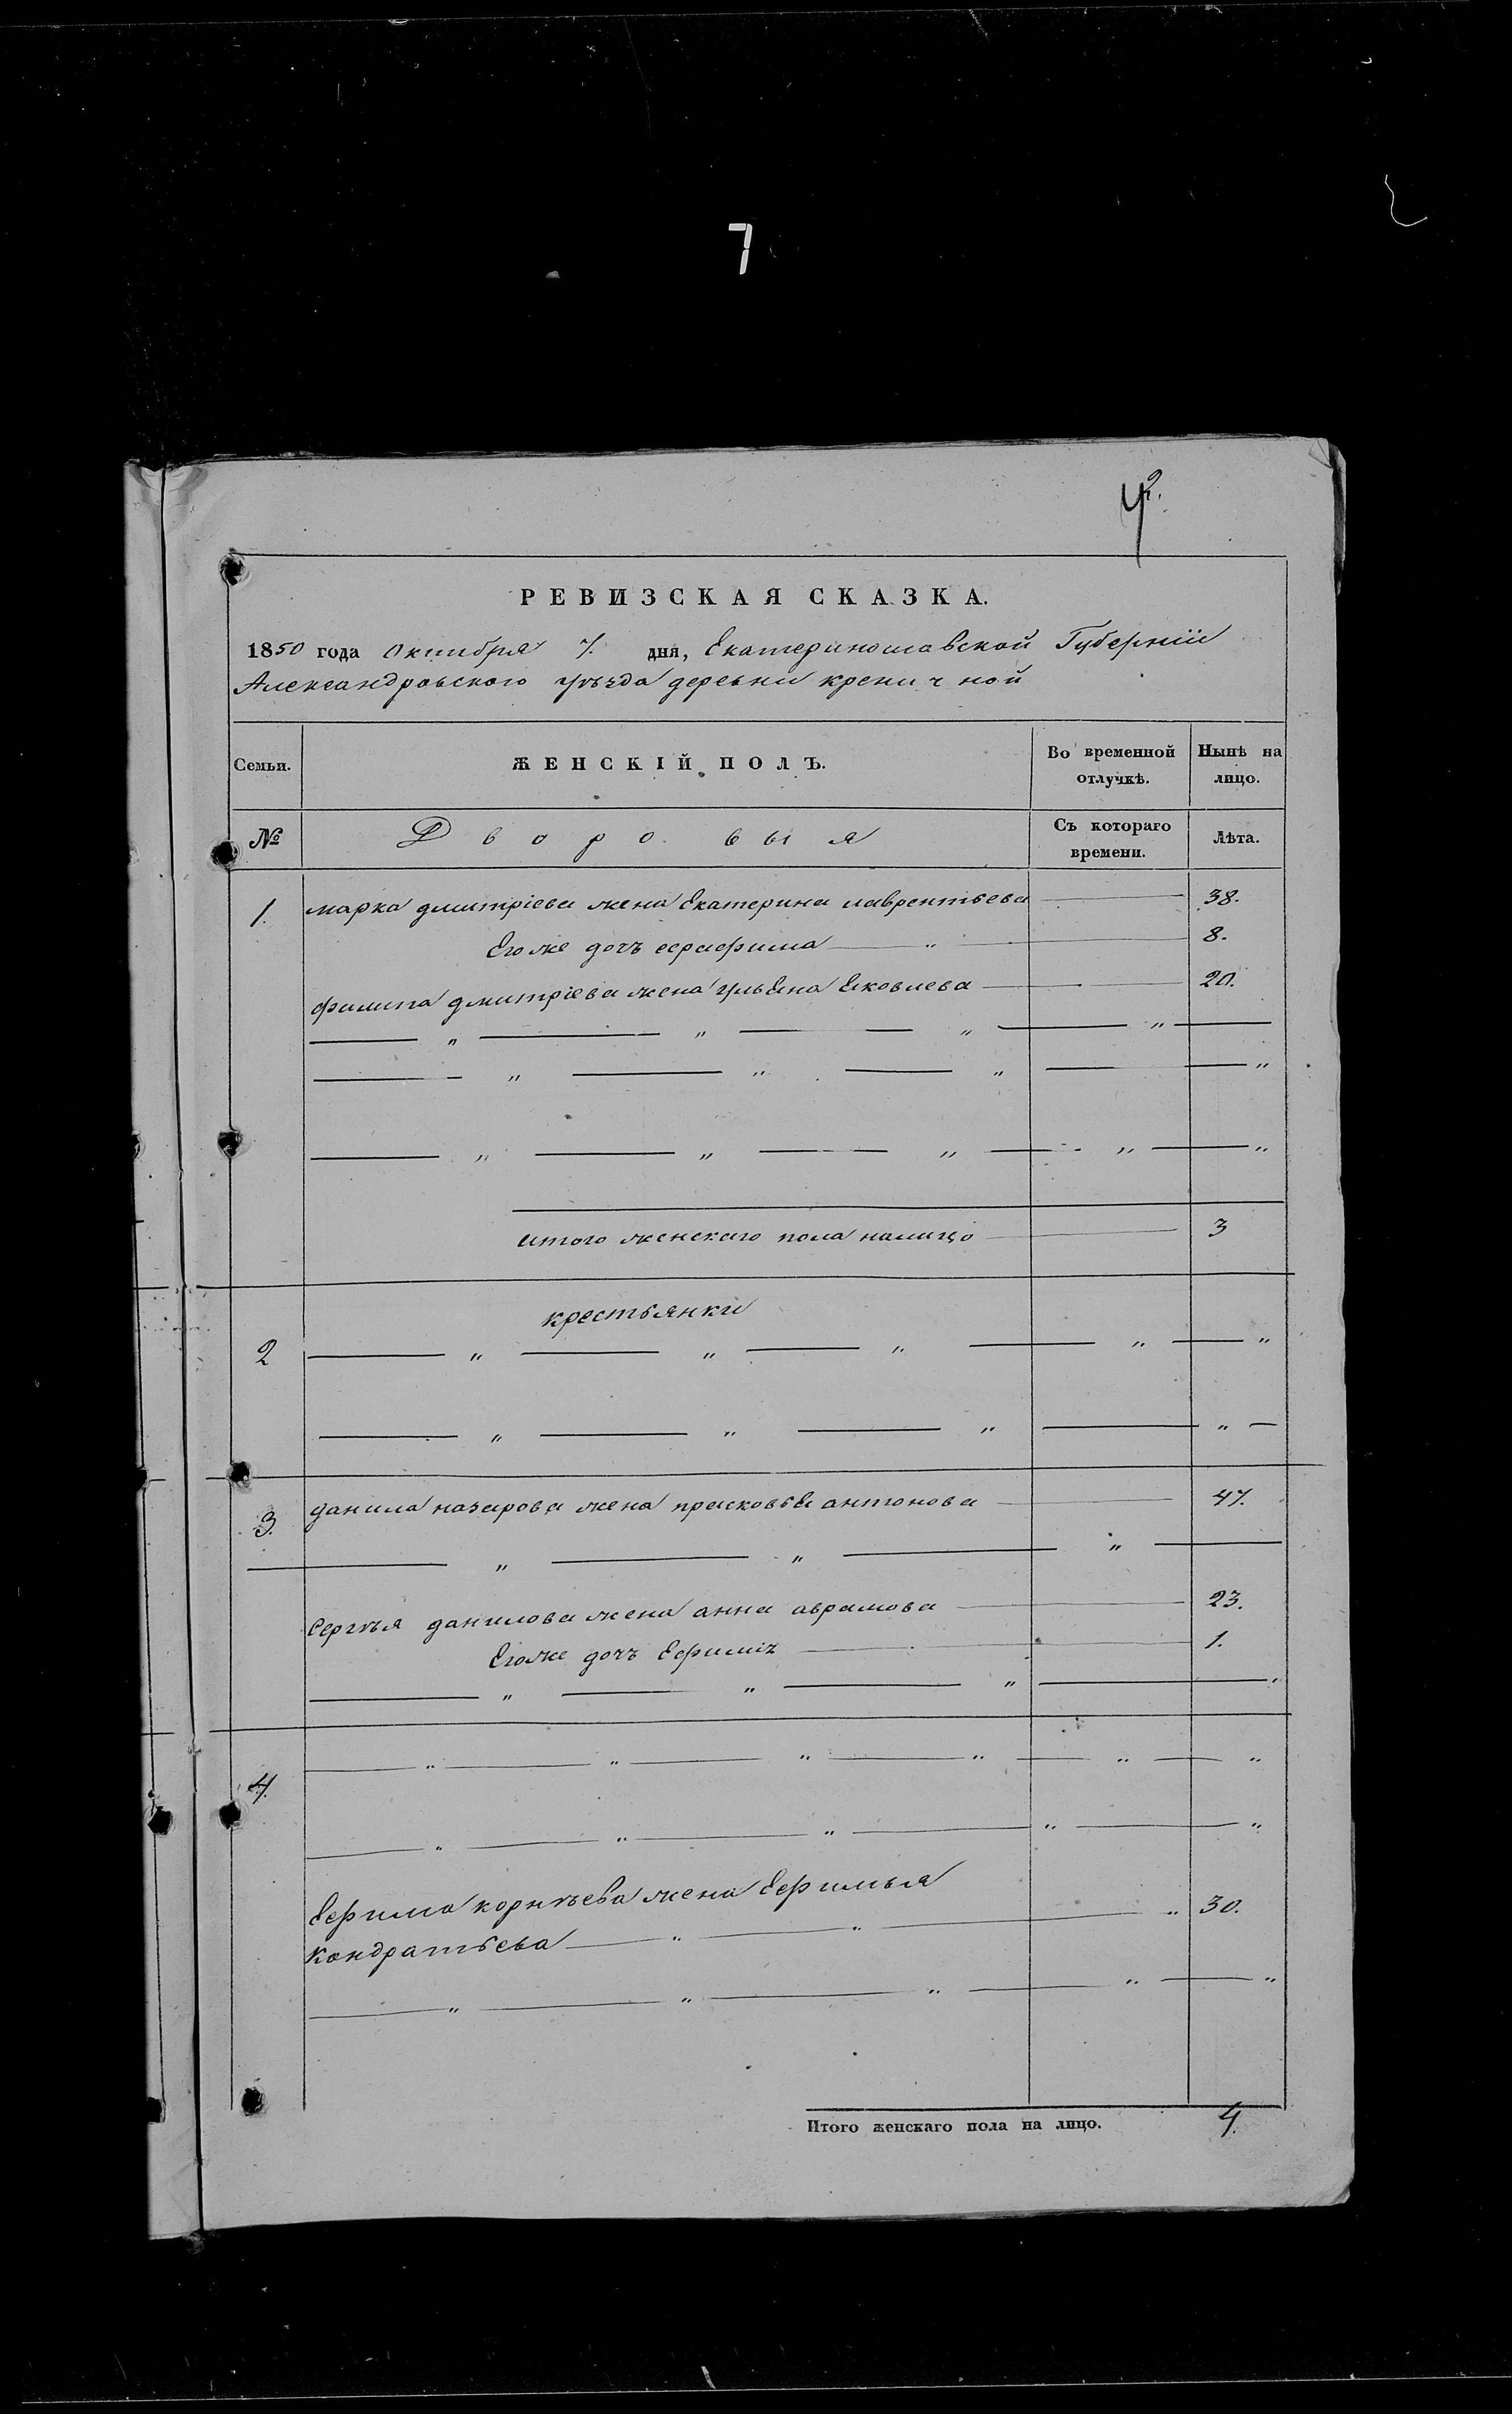 7
РЕВИЗСКАЯ СКАЗКА.
1850 года Октября 7. дня, Екатериославской Губерніи
Александровского уѣзда деревни креничной
Семьи. ЖЕНСКІЙ ПОЛЪ. Во временной отлучкѣ. Нынѣ на лицо.
№ Дворовыя Съ котораго времени. Лѣта.
1. марка дмитріева жена Екатерина лаврентьева 38.
Егоже дочъ серафима " 8.
филипа дмитріева жена ульяна Яковлева 20.
" " " "
" " " "
" " " " "
итого женскаго пола налицо 3
крестьянки
2 " " " " "
" " " "
3. данила назарова жена прасковья антонова 47.
" " "
Сергѣя данилова жена анна аврамова 23.
Егоже дочъ Ефимія 1.
" " " "
4. " " " " " "
" " " " "
Ефима корнѣева жена Ефимья
Кондратьева " " " 30.
" " " " "
Итого женскаго пола на лицо. 4.